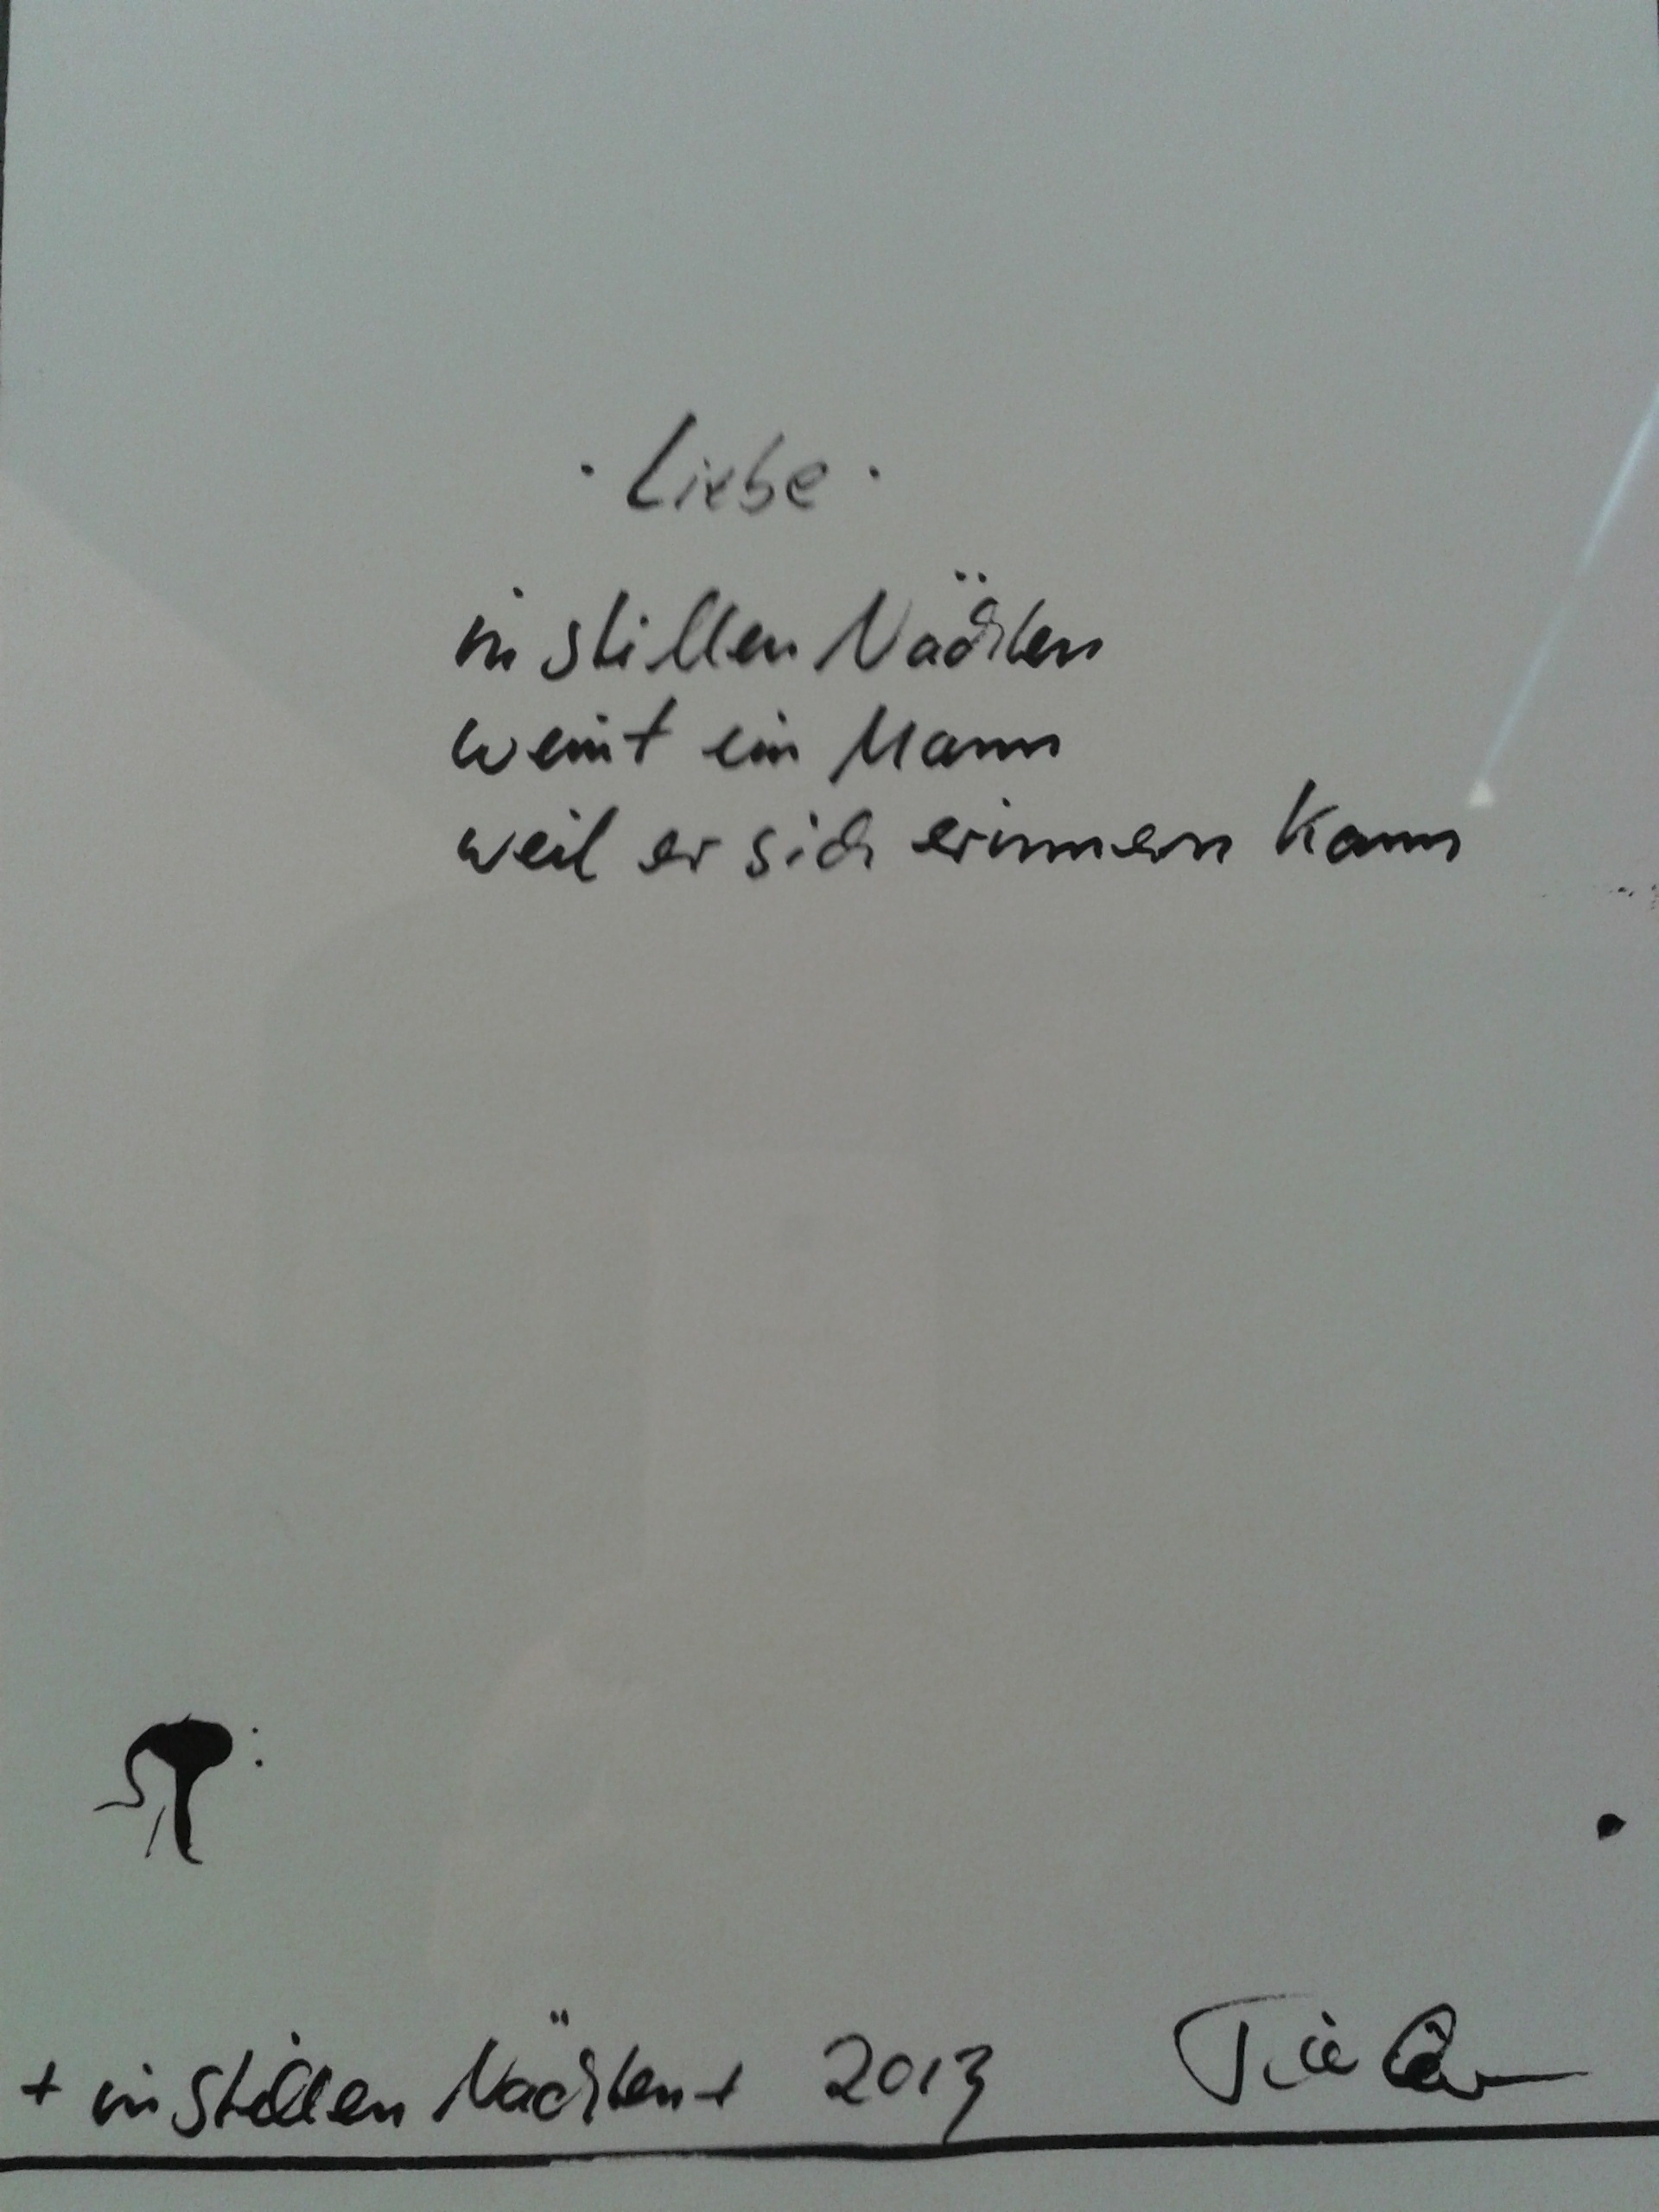 · Liebe ·
in stillen Nächten
weint ein Mann
weil er sich erinnern kann
+ in Stillen Nächten + 2013